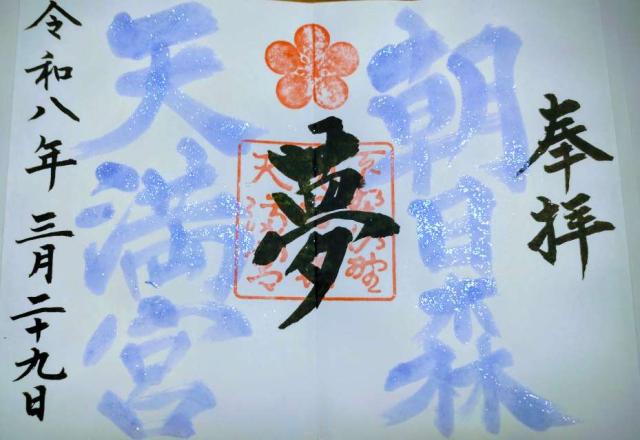 奉拝
朝日森
夢
天満宮
令和八年 三月二十九日